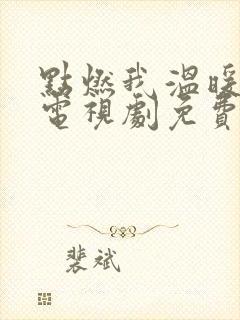 點燃我溫暖
電視劇免費
裴斌